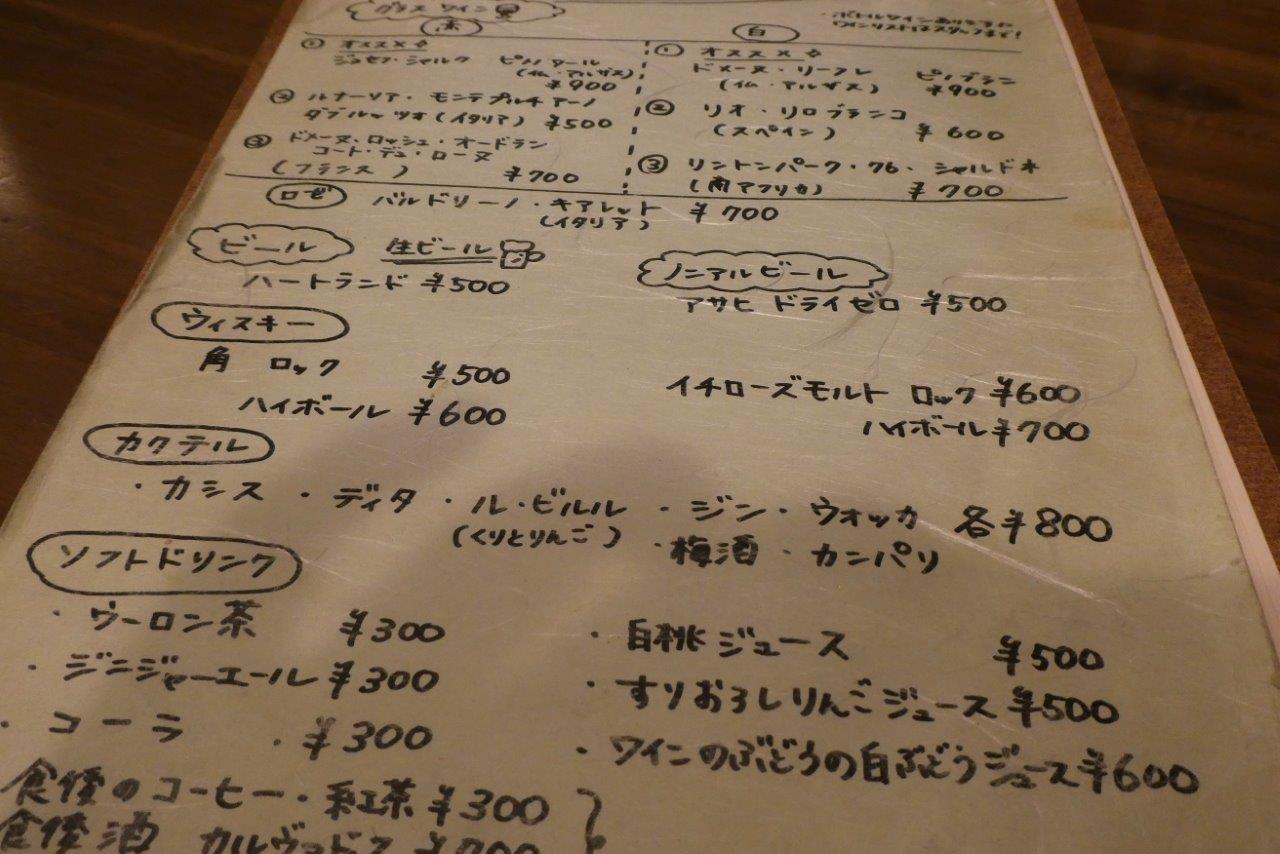 グラスワイン
・ボトルワインあります!!
ワインリストはスタッフまで!
赤
① オススメ
ジョセフ・シャルク ピノノワール
(仏・アルザス)
¥900
② ルナーリア・モンテプルチアーノ
ダブルッツオ(イタリア) ¥500
③ ドメーヌ・ロッシュ・オードラン
コート・デュ・ローヌ
(フランス) ¥700
白
① オススメ
ドメーヌ・リーフレ ピノブラン
(仏・アルザス) ¥900
② リオ・リロブランコ
(スペイン) ¥600
③ リントンパーク・76、シャルドネ
(南アフリカ) ¥700
ロゼ バルドリーノ・キアレット ¥700
(イタリア)
ビール 生ビール
ハートランド ¥500
ノンアルビール
アサヒ ドライゼロ ¥500
ウィスキー
角 ロック ¥500
ハイボール ¥600
イチローズモルト ロック ¥600
ハイボール ¥700
カクテル
・カシス ・ディタ ・ル・ビルル ・ジン・ウォッカ 各¥800
(くりとりんご) ・梅酒 ・カンパリ
ソフトドリンク
・ウーロン茶 ¥300
・ジンジャーエール ¥300
・コーラ ・¥300
・白桃ジュース ¥500
・すりおろしりんごジュース ¥500
・ワインのぶどうの白ぶどうジュース ¥600
食後のコーヒー・紅茶 ¥300
食後酒 カルヴァドス ¥700